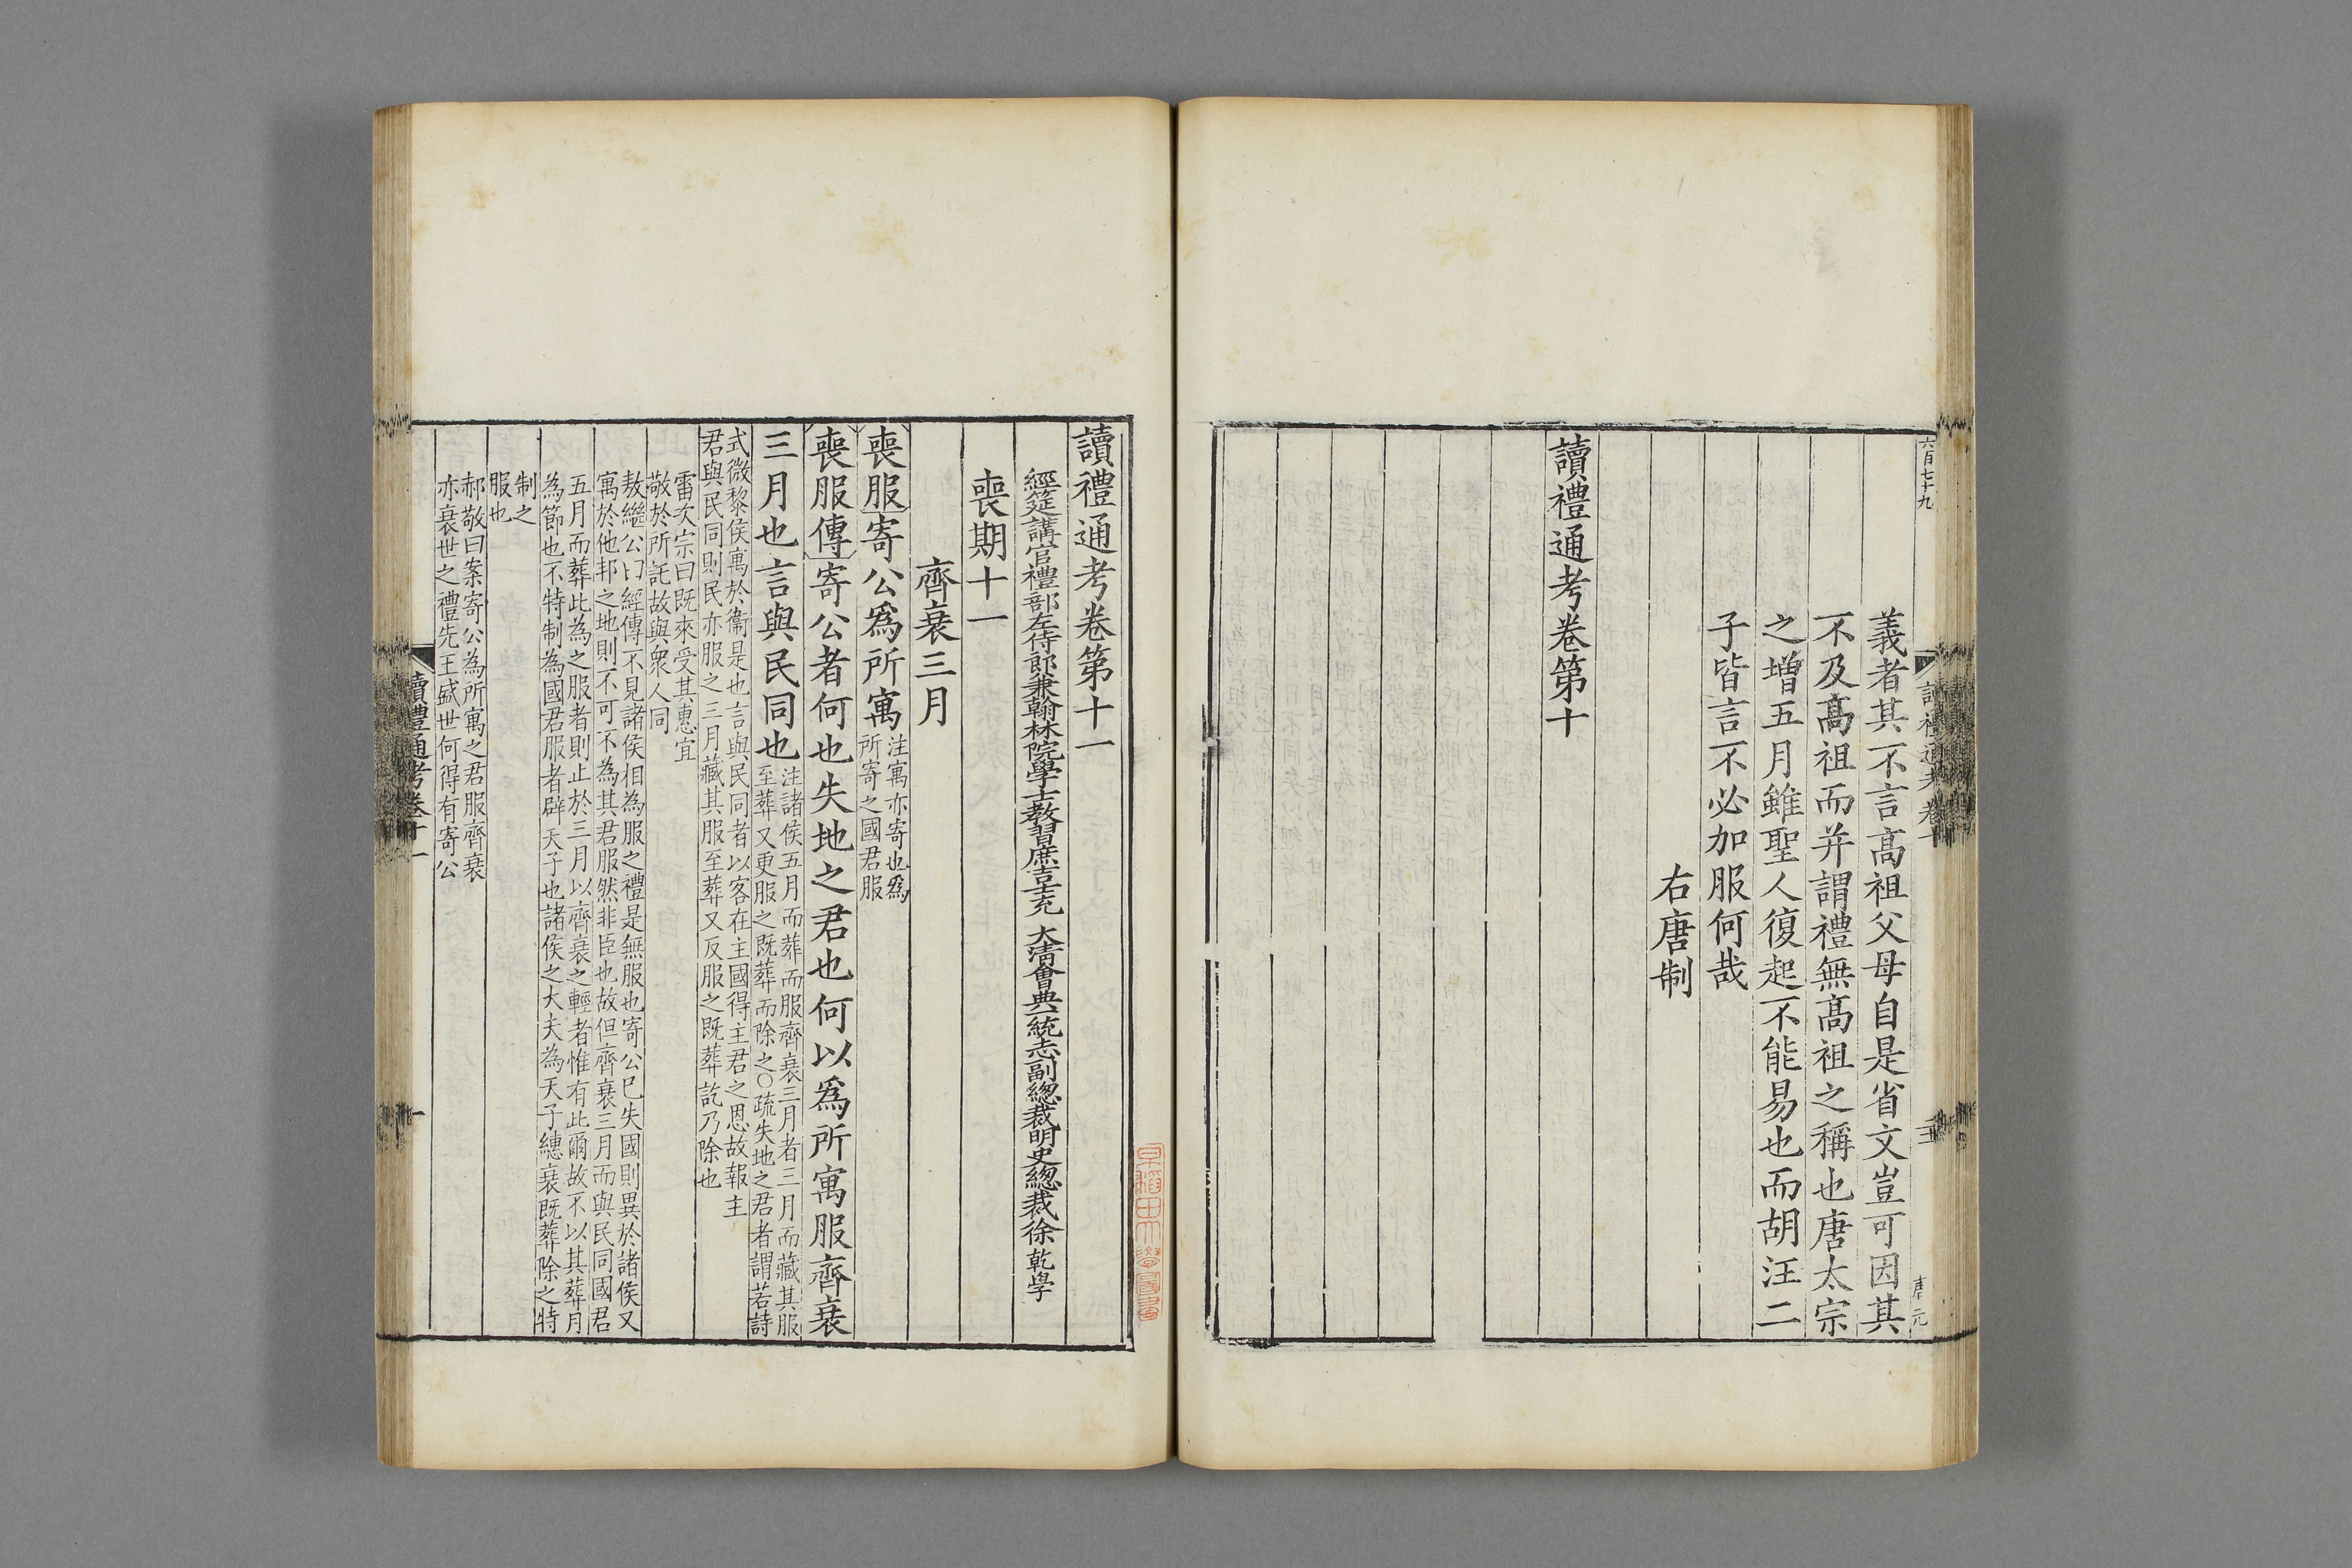 六百七十九
義者其不言高祖父母自是省文豈可因其
不及高祖而并謂禮無高祖之稱也唐太宗
之增五月雖聖人復起不能易也而胡汪二
子皆言不必加服何哉
右唐制
讀禮通考卷第十
讀禮通考卷第十一
經筵講官禮部左侍郎兼翰林院學士教習庶吉士充 大清會典一統志副總裁明史總裁徐乾學
喪期十一
齊衰三月
喪服寄公爲所寓
注寓亦寄也爲
所寄之國君服
喪服傳寄公者何也失地之君也何以爲所寓服齊衰
三月也言與民同也
注諸侯五月而葬而服齊衰三月者三月而藏其服
至葬又更服之既葬而除之○疏失地之君者謂若詩
式微黎侯寓於衞是也言與民同者以客在主國得主君之恩故報主
君與民同則民亦服之三月藏其服至葬又反服之既葬訖乃除也
雷次宗曰既來受其惠宜
敬於所託故與衆人同
敖繼公曰經傳不見諸侯相為服之禮是無服也寄公已失國則異於諸侯又
寓於他邦之地則不可不為其君服然非臣也故但齊衰三月而與民同國君
五月而葬此為之服者則止於三月以齊衰之輕者惟有此爾故不以其葬月
為節也不特制為國君服者辟天子也諸侯之大夫為天子繐衰既葬除之特
制之
服也
郝敬曰案寄公為所寓之君服齊衰
亦衰世之禮先王盛世何得有寄公
讀禮通考卷十一
一